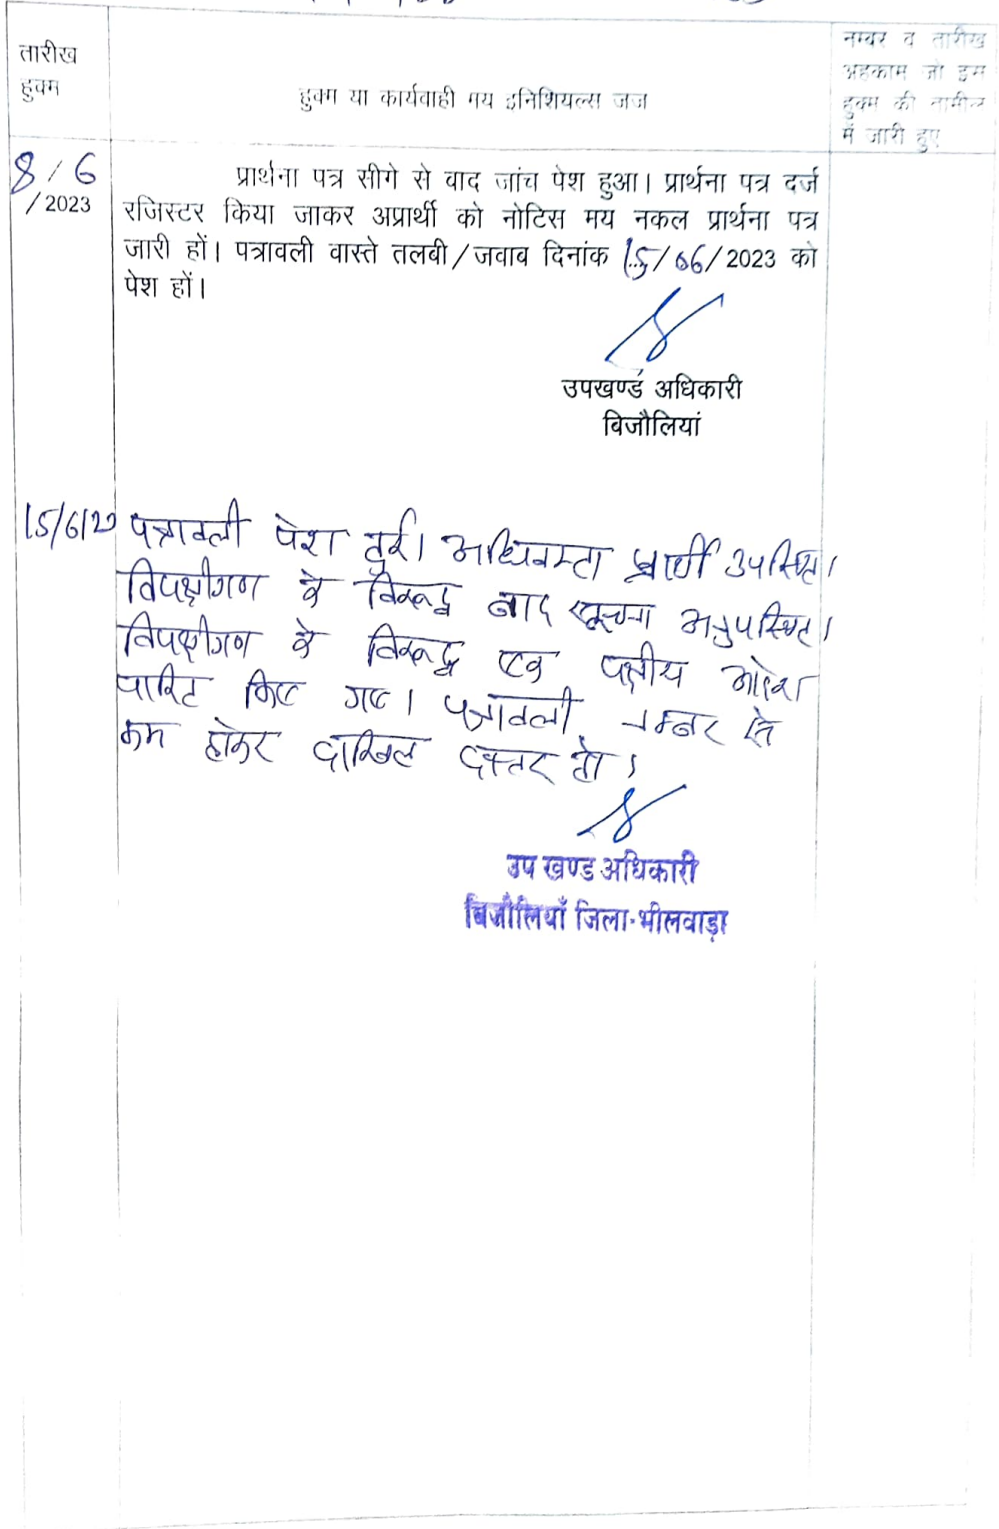 तारीख
हुक्म
हुक्म या कार्यवाही मय इनिशियल्स जज
नम्बर व तारीख
अहकाम जो इस
हुक्म की तामील
में जारी हुए
8/6
/2023
प्रार्थना पत्र सीगे से वाद जांच पेश हुआ। प्रार्थना पत्र दर्ज
रजिस्टर किया जाकर अप्रार्थी को नोटिस मय नकल प्रार्थना पत्र
जारी हों। पत्रावली वास्ते तलबी/जवाब दिनांक 15/06/2023 को
पेश हों।
उपखण्ड अधिकारी
बिजौलियां
15/6/23 पत्रावली पेश हुई। अधिवक्ता प्रार्थी उपस्थित।
विपक्षीगण के विरूद्ध बाद सूचना अनुपस्थित।
विपक्षीगण के विरूद्ध एक पक्षीय आदेश
पारित किए गए। पत्रावली नम्बर से
कम होकर दाखिल दफ्तर हो।
उप खण्ड अधिकारी
बिजौलियाँ जिला-भीलवाड़ा